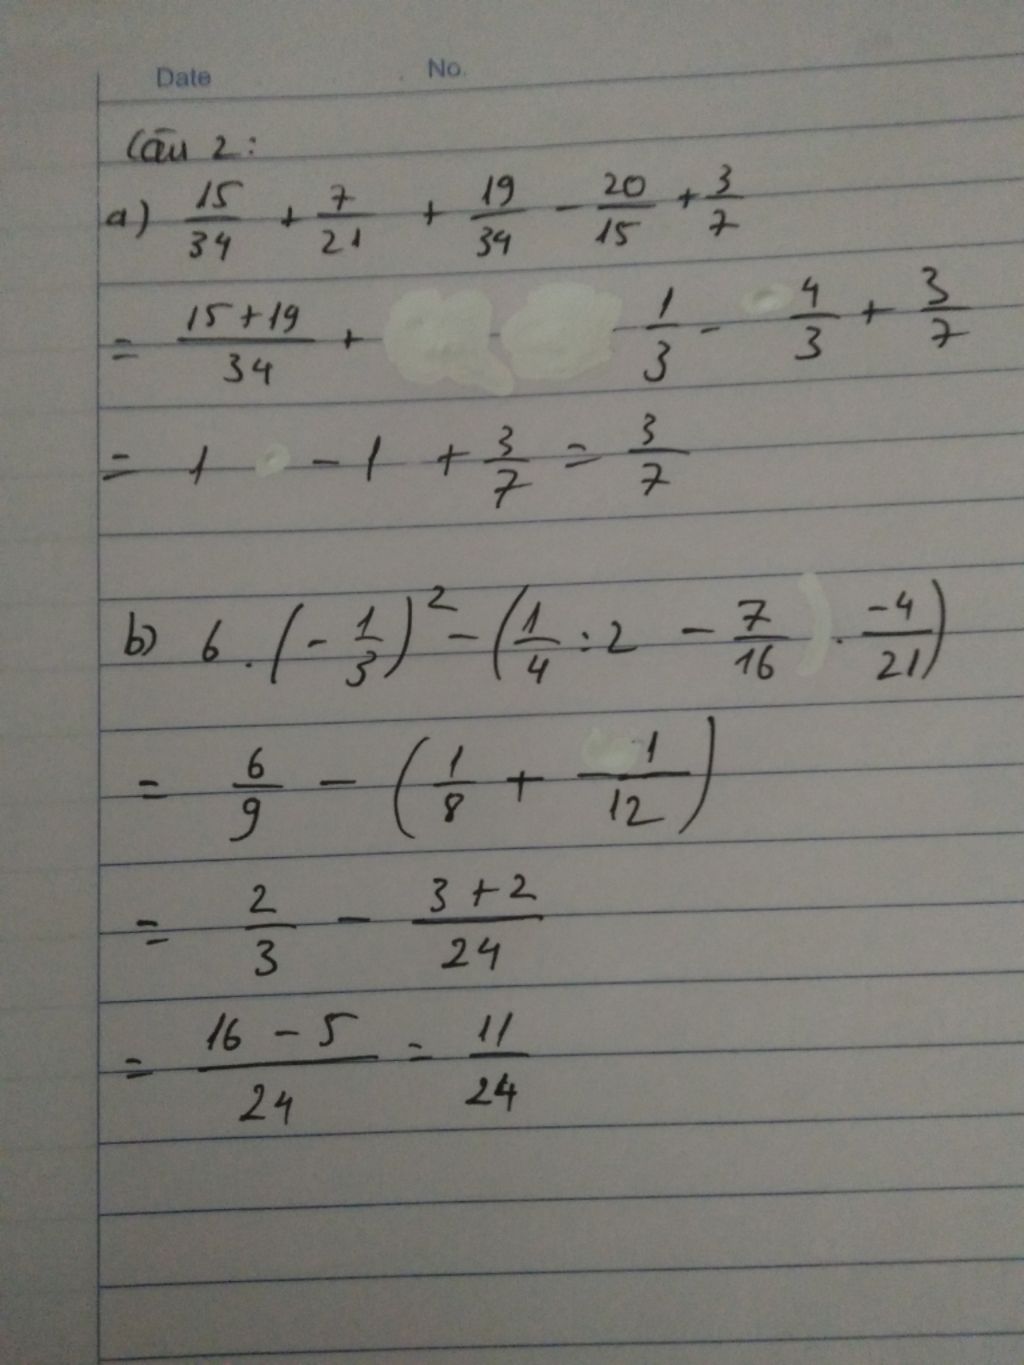 Date No.
Câu 2:
a) 15/34 + 7/21 + 19/34 - 20/15 + 3/7
= (15+19)/34 + 1/3 - 4/3 + 3/7
= 1 - 1 + 3/7 = 3/7
b) 6 . (- 1/3)² - (1/4 : 2 - 7/16 . -4/21)
= 6/9 - (1/8 + 1/12)
= 2/3 - (3+2)/24
= (16 - 5)/24 = 11/24